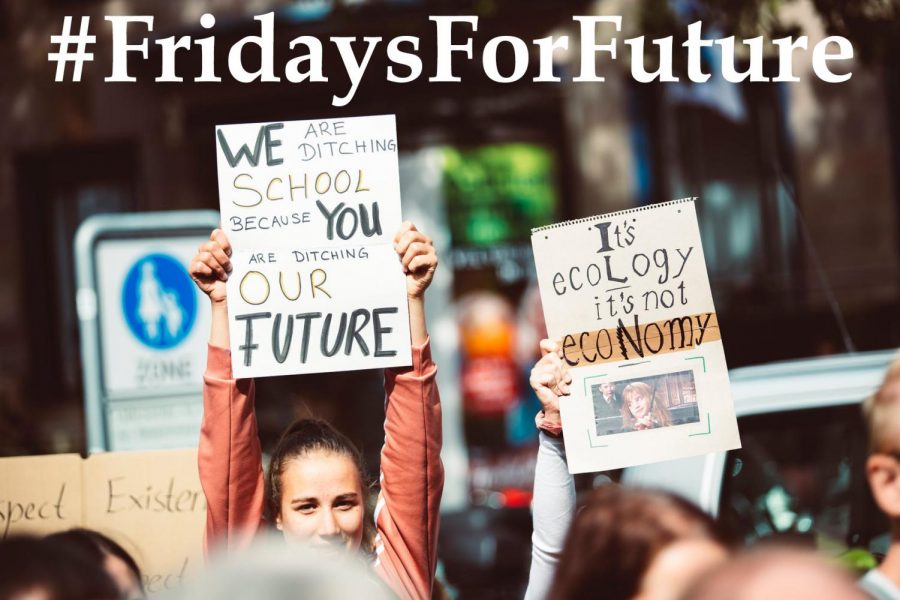 #FridaysForFuture
WE ARE
DITCHING
SCHOOL
BECAUSE YOU
ARE DITCHING
OUR
FUTURE
It's
ecoLogy
it's not
ecoNomy
ZONE
Existen